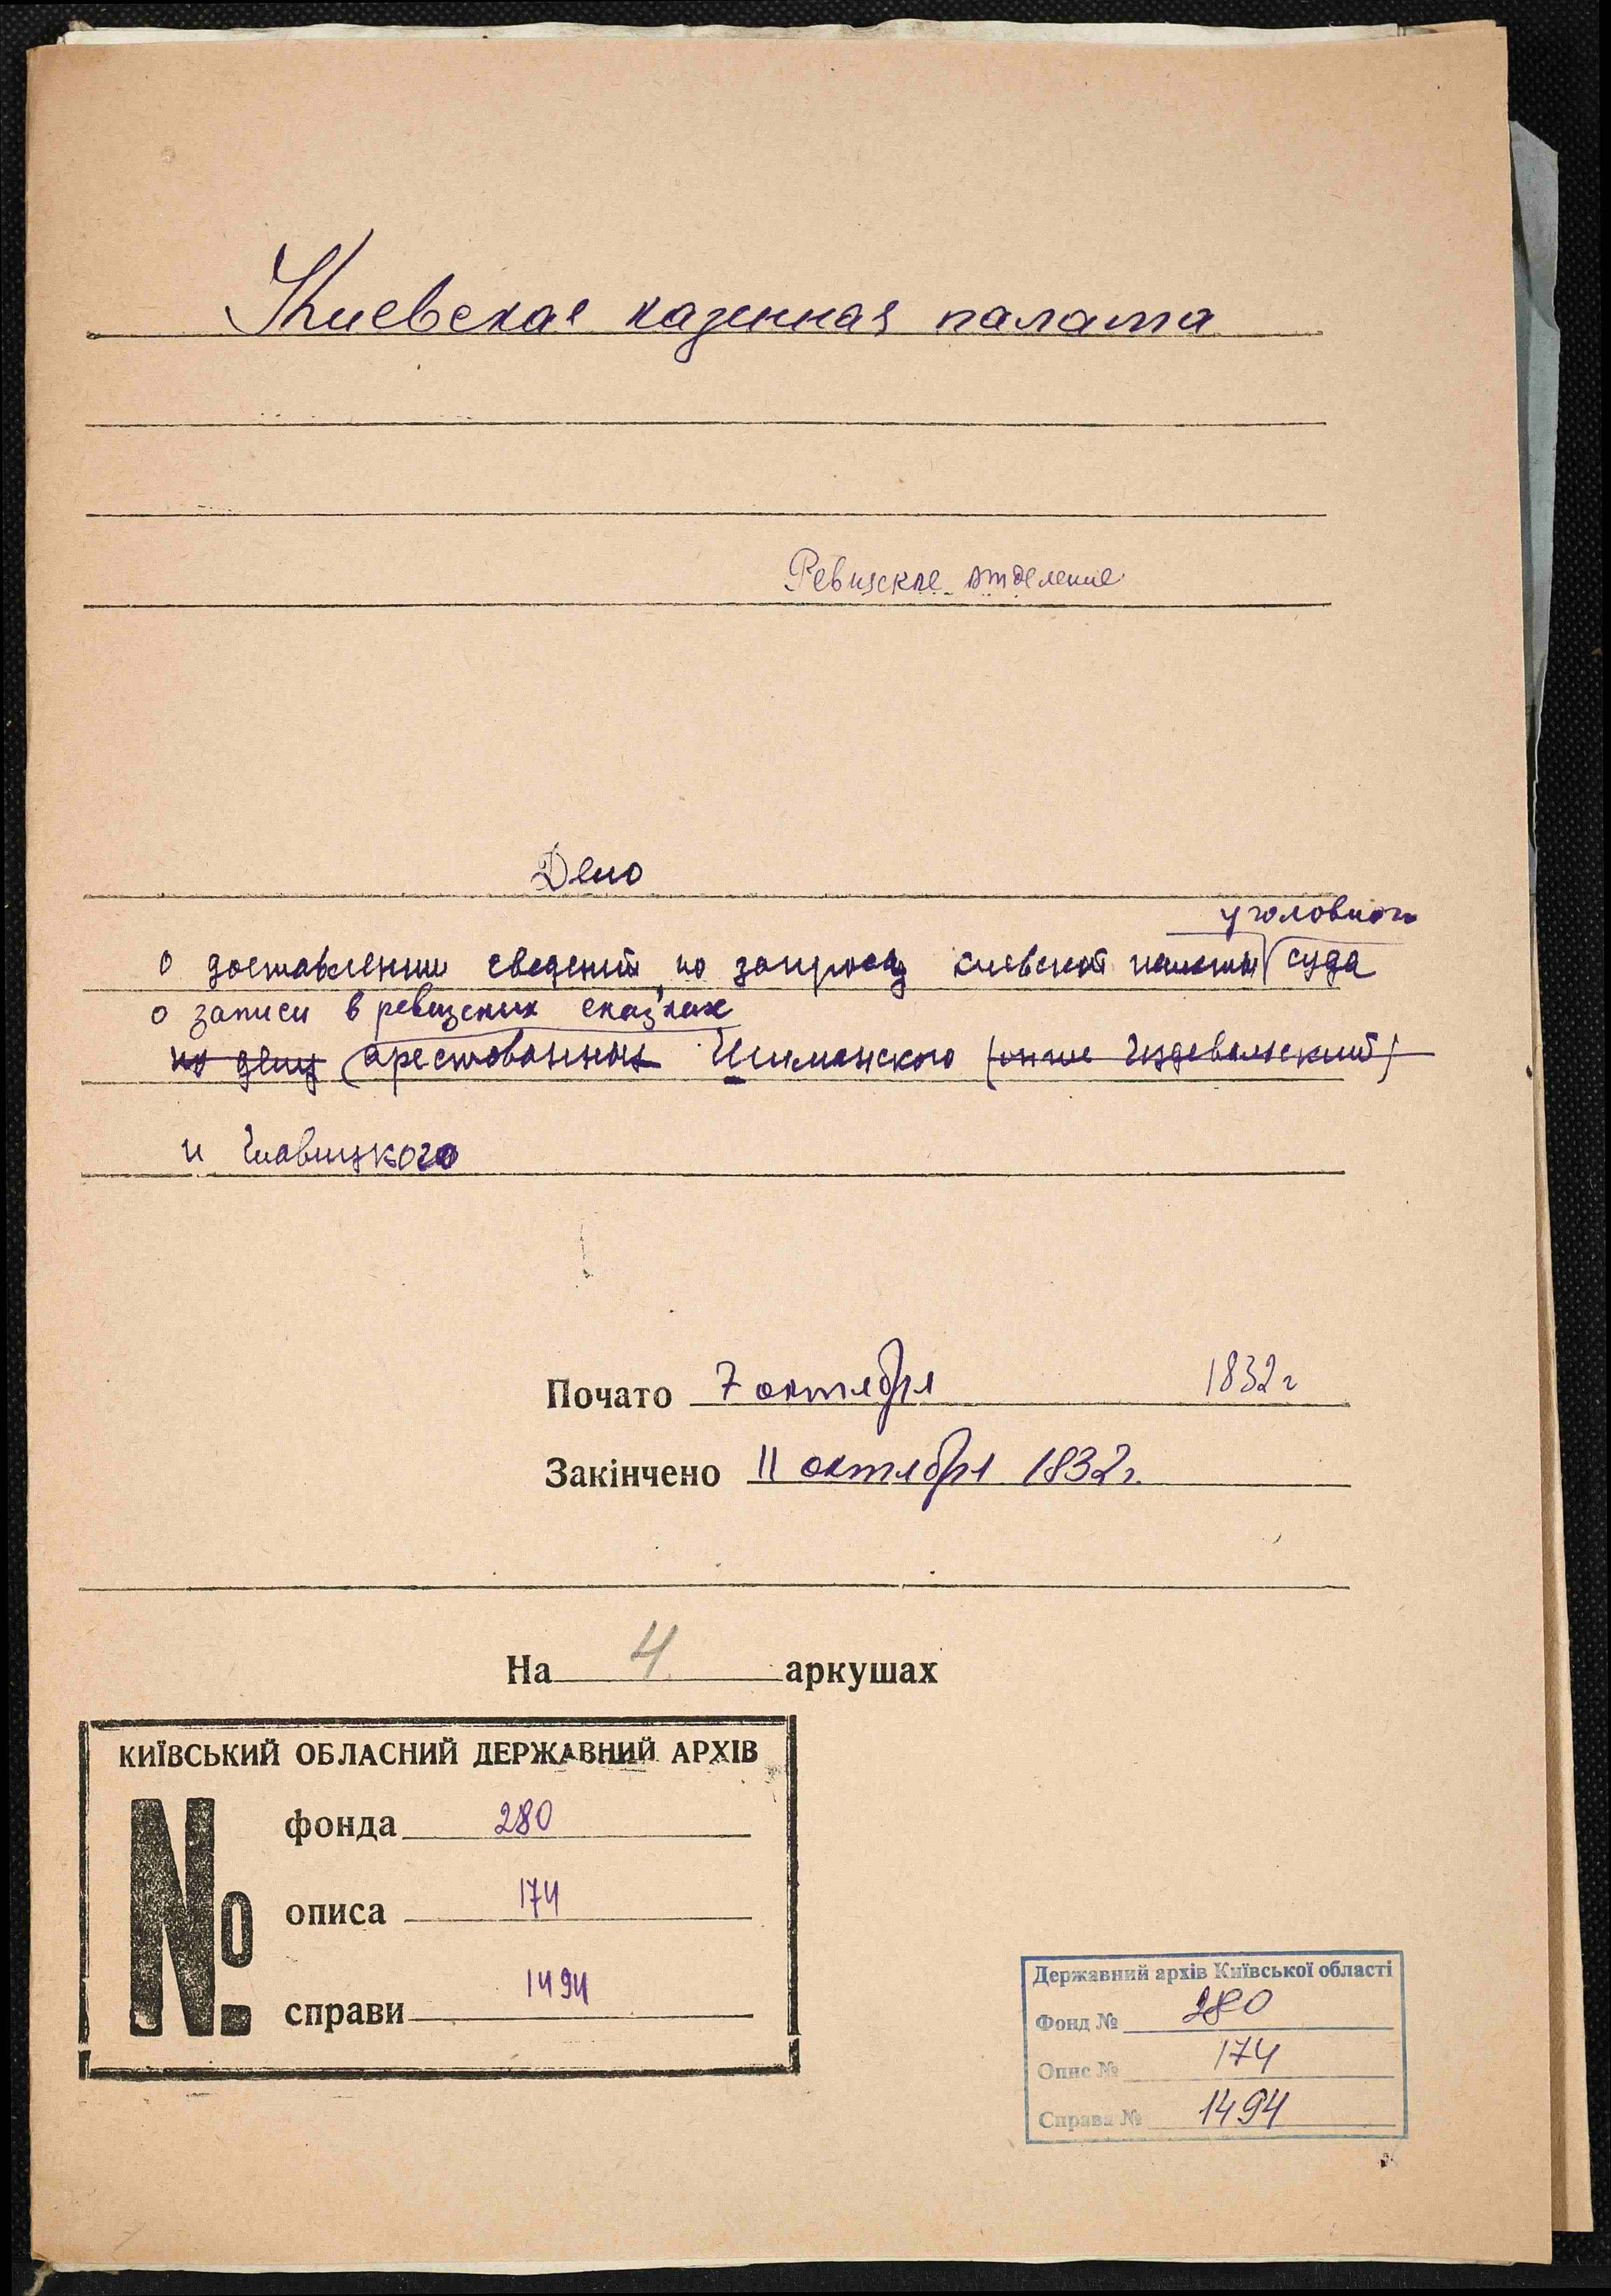 Киевская казенная палата
Ревизское отделение
Дело
уголовного
о доставлении сведений по запросу киевской палаты суда
о записи в ревизских сказках
по делу арестованных Шиманского (он же
и
Почато 7 октября 1832 г
Закінчено 11 октября 1832 г.
На 4 аркушах
КИЇВСЬКИЙ ОБЛАСНИЙ ДЕРЖАВНИЙ АРХІВ
№ фонда 280
описа 174
справи 1494
Державний архів Київської області
Фонд № 280
Опис № 174
Справа № 1494